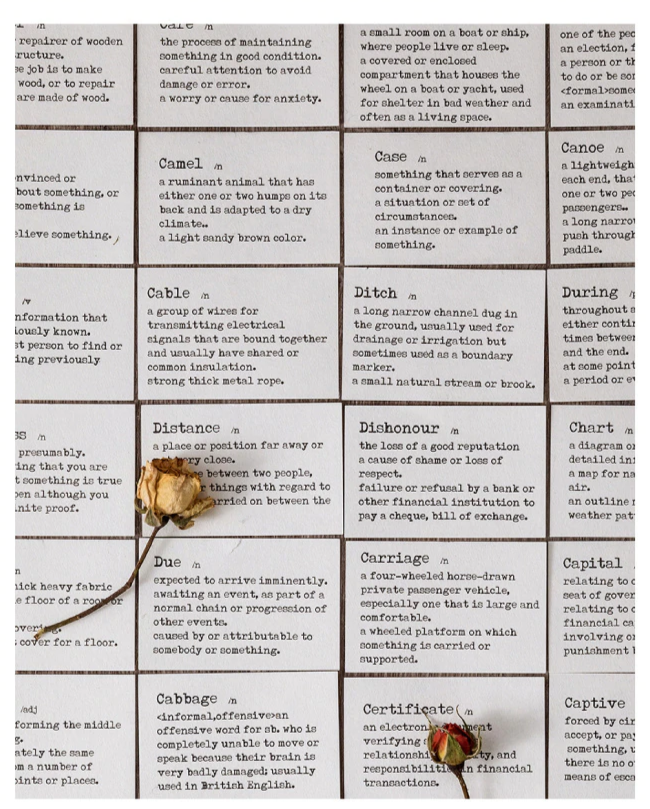 repairer of wooden
job is to make
wood, or to repair
are made of wood.
Care /n
the process of maintaining
something in good condition.
careful attention to avoid
damage or error.
a worry or cause for anxiety.
a small room on a boat or ship,
where people live or sleep.
a covered or enclosed
compartment that houses the
wheel on a boat or yacht, used
for shelter in bad weather and
often as a living space.
one of the
an election,
a person or
to do or be
<formal>
an
or
something, or
something is
believe something.
Camel /n
a ruminant animal that has
either one or two humps on its
back and is adapted to a dry
climate..
a light sandy brown color.
Case /n
something that serves as a
container or covering.
a situation or set of
circumstances.
an instance or example of
something.
Canoe /n
a lightweight
each end,
one or two
passengers..
a long narrow
push through
paddle.
/v
that
known.
person to find or
previously
Cable /n
a group of wires for
transmitting electrical
signals that are bound together
and usually have shared or
common insulation.
strong thick metal rope.
Ditch /n
a long narrow channel dug in
the ground, usually used for
drainage or irrigation but
sometimes used as a boundary
marker.
a small natural stream or brook.
During
throughout
either
times between
and the end.
at some point
a period or
/n
presumably.
that you are
something is true
although you
proof.
Distance /n
a place or position far away or
close.
between two people,
things with regard to
carried on between the
Dishonour /n
the loss of a good reputation
a cause of shame or loss of
respect.
failure or refusal by a bank or
other financial institution to
pay a cheque, bill of exchange.
Chart /n
a diagram or
detailed
a map for
air.
an outline
weather
thick heavy fabric
floor of a room or
cover for a floor.
Due /n
expected to arrive imminently.
awaiting an event, as part of a
normal chain or progression of
other events.
caused by or attributable to
somebody or something.
Carriage /n
a four-wheeled horse-drawn
private passenger vehicle,
especially one that is large and
comfortable.
a wheeled platform on which
something is carried or
supported.
Capital
relating to
seat of
relating to
financial
involving
punishment
/adj
forming the middle
the same
a number of
points or places.
Cabbage /n
<informal,offensive>an
offensive word for sb. who is
completely unable to move or
speak because their brain is
very badly damaged; usually
used in British English.
Certificate /n
an
verifying
and
responsibilities in financial
transactions.
Captive
forced by
accept, or
something,
there is no
means of